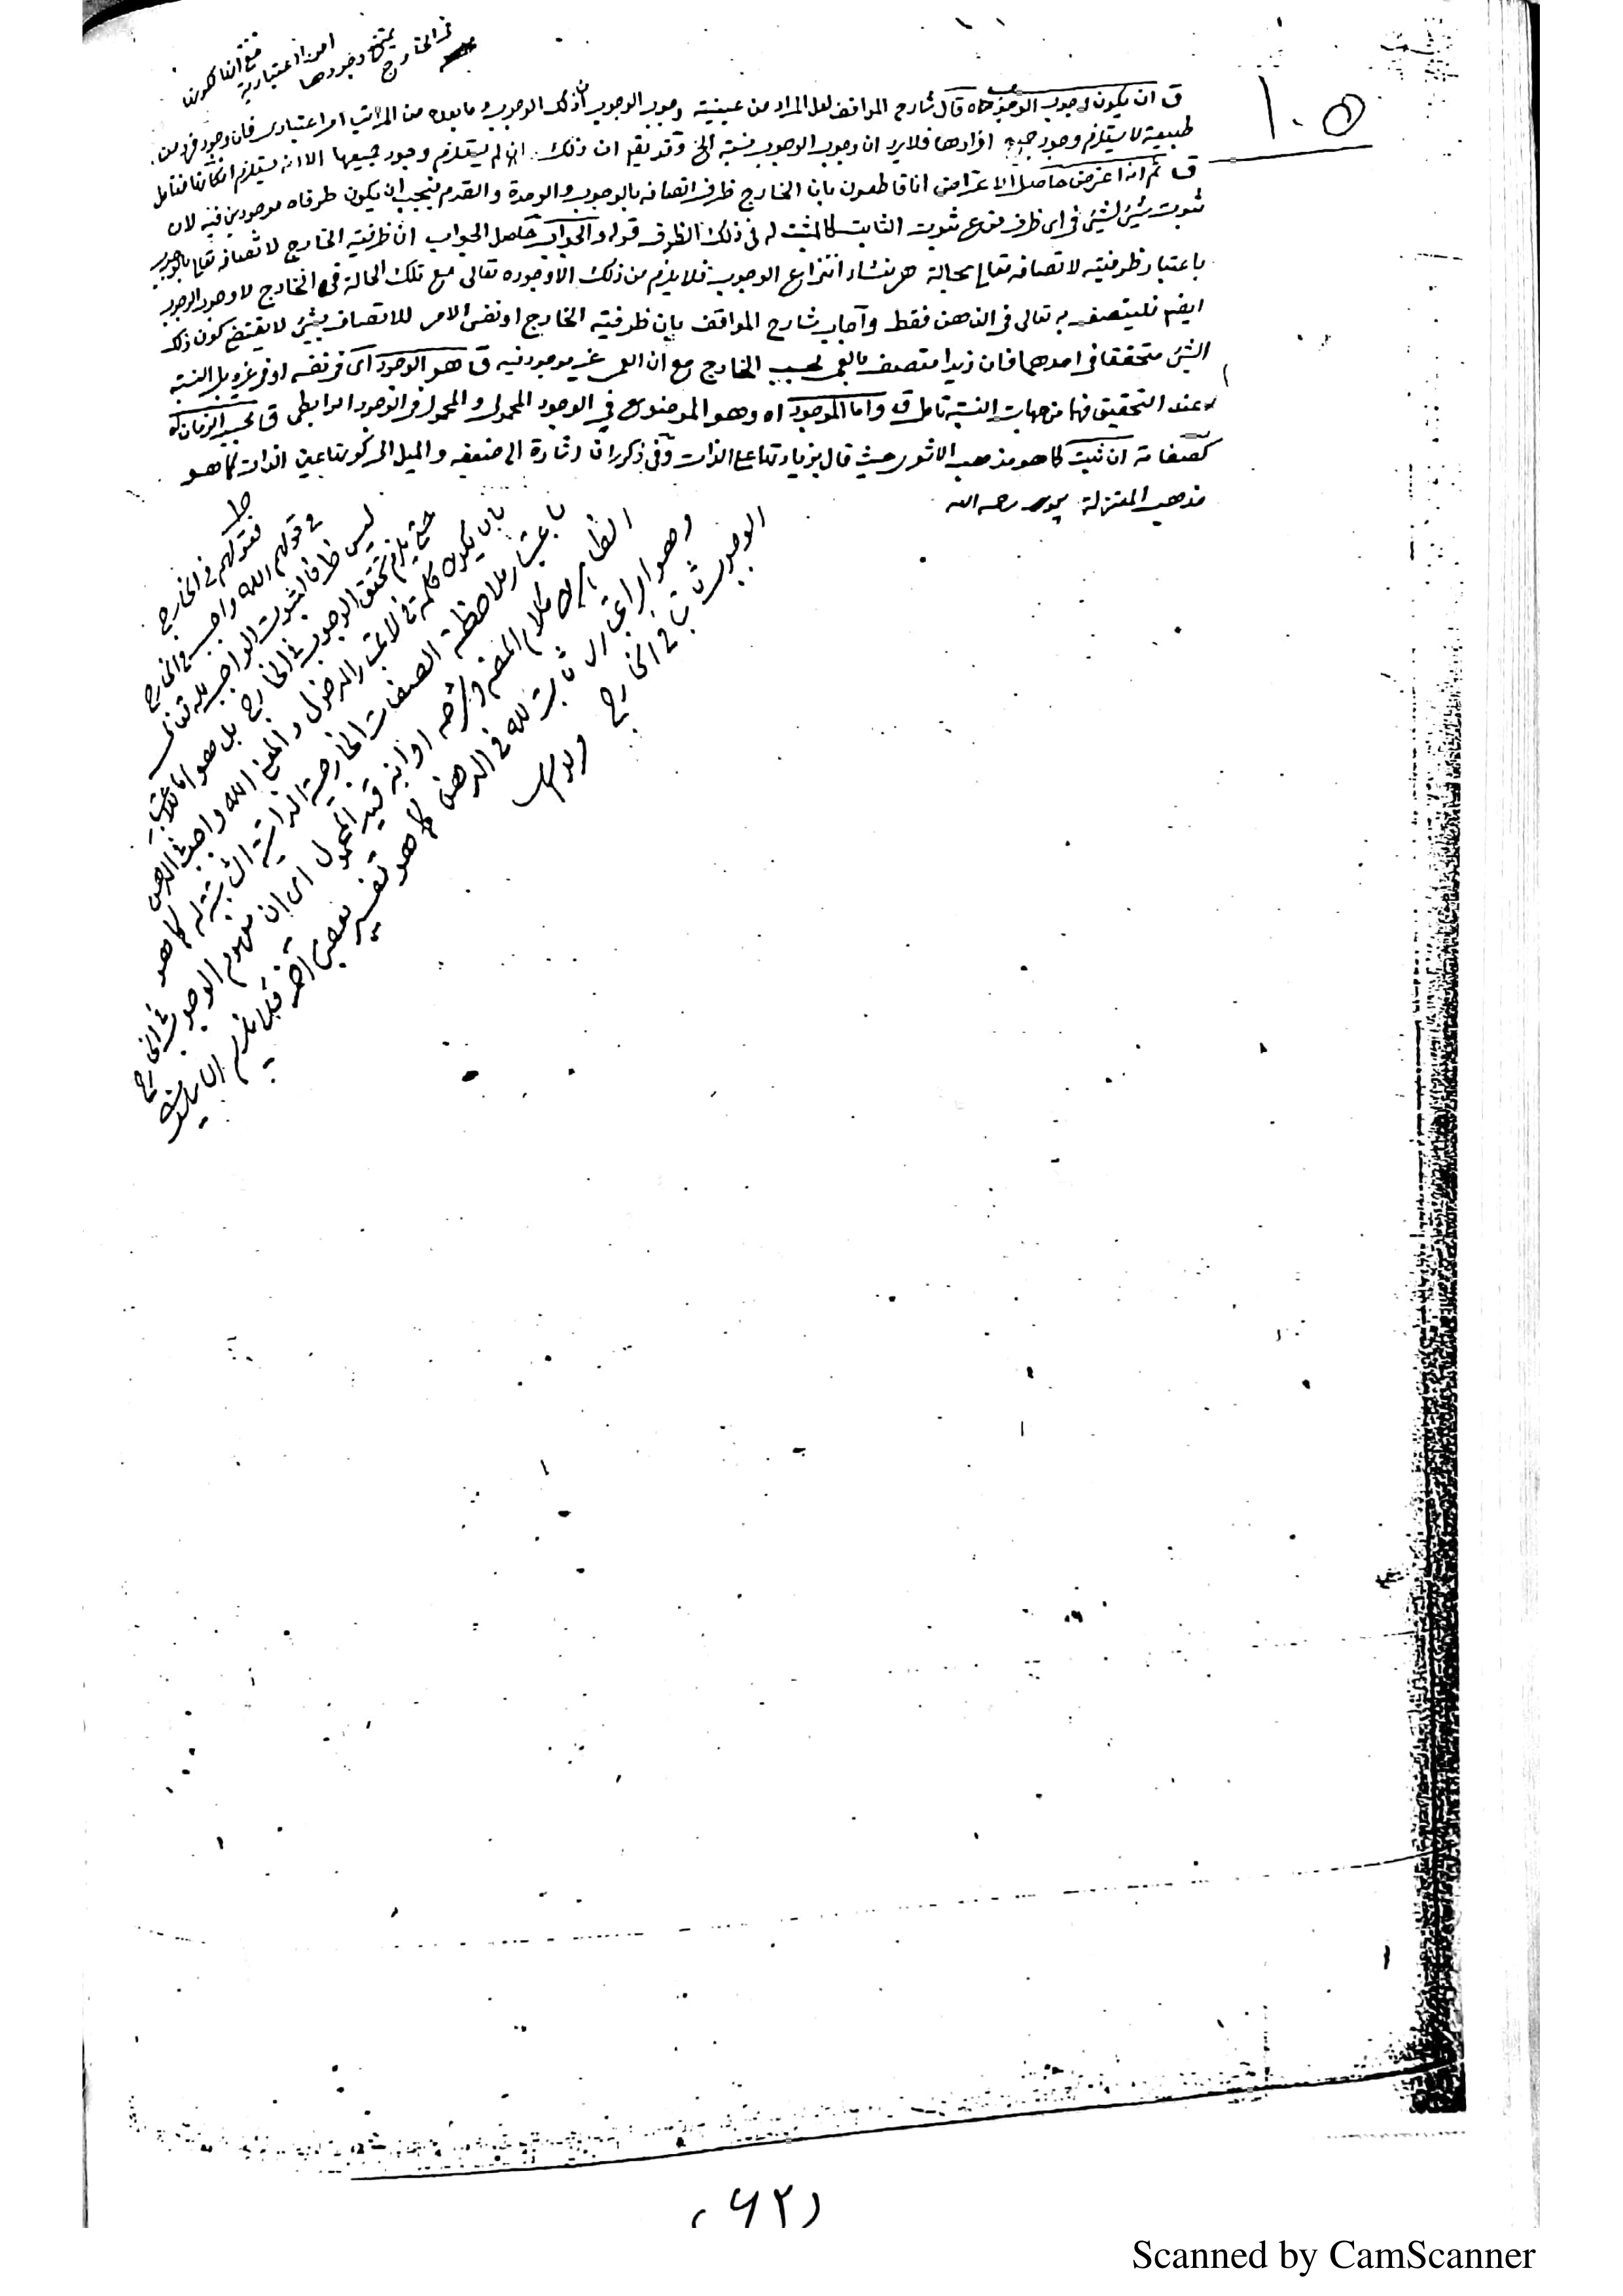 ١٠٥
فى الخارج
يمتنع وجودها
امورا اعتبارية
ق ان يكون وجوب الوجوب اه قال شارح المواقف لعل المراد من عينية وجوب الوجوب ان ذلك الوجوب وما بعده من المراتب امر اعتبارى فان وجود فرد من
طبيعة لا يستلزم وجود جميع افرادها فلا يرد ان وجوب الوجوب نسبة الخ وقد يقم ان ذلك ان لم يستلزم وجود جميعها الا انه يستلزم امكانها فتامل
ق ثم انه اعترض حاصل الاعتراض انا قاطعون بان الخارج ظرف اتصافه بالوجوب والوحدة والقدم فيجب ان يكون طرفاه موجودين فيه لان
ثبوت شئ لشئ فى اى ظرف فرع ثبوت الثابت كالمثبت له فى ذلك الظرف قوله والجواب حاصل الجواب ان ظرفية الخارج لاتصافه تعالى بالوجوب
باعتبار ظرفيته لاتصافه تعالى بحالة هى منشاء انتزاع الوجوب فلا يلزم من ذلك الا وجوده تعالى مع تلك الحالة فى الخارج لا وجود الوجوب
ايضم فليتصف به تعالى فى الذهن فقط واجاب شارح المواقف بان ظرفية الخارج او نفس الامر للاتصاف بشئ لا يقتضى كون ذلك
الشئ متحققا فى احدهما فان زيدا متصف بالعمى بحسب الخارج مع ان العمى غير موجود فيه ق هو الوجود اى فى نفسه او فى غيره بل النسبة
عند التحقيق فهما من جهات النسبة تامل ق واما الموجود اه وهو الموضوع فى الوجود المحمول والمحمول فى الوجود الرابطى ق بحسب الزمان كه
كصفاته ان ثبت كما هو مذهب الاشعرى حيث قال بزيادتها على الذات وفى ذكر ان اشارة الى ضعفه والميل الى كونها عين الذات كما هو
مذهب المعتزلة رحمه الله
فقولهم فى الخارج
فى قولهم الله واجب فى الخارج
ليس ظرفا لثبوت الواجب لله تعالى
حتى يلزم تحقق الوجوب فى الخارج بل هو اما للاعتبار
بان يكون كلمة فى لاعتبار المدخول والمعنى الله واجب فى الذهن
باعتبار ملاحظة الصفات الخارجية الذاتية الثابتة له كما هو
الظاهر من كلام المض وشرحه او انه قيد المحمول اى ان مفهوم الوجوب فى الخارج
وهو امر اعتبارى ثابت لله فى الذهن كما هو تفسير بعض اخر فلا يلزم ان يكون
الوجوب ثابتا فى الخارج
(٦٢)
Scanned by CamScanner